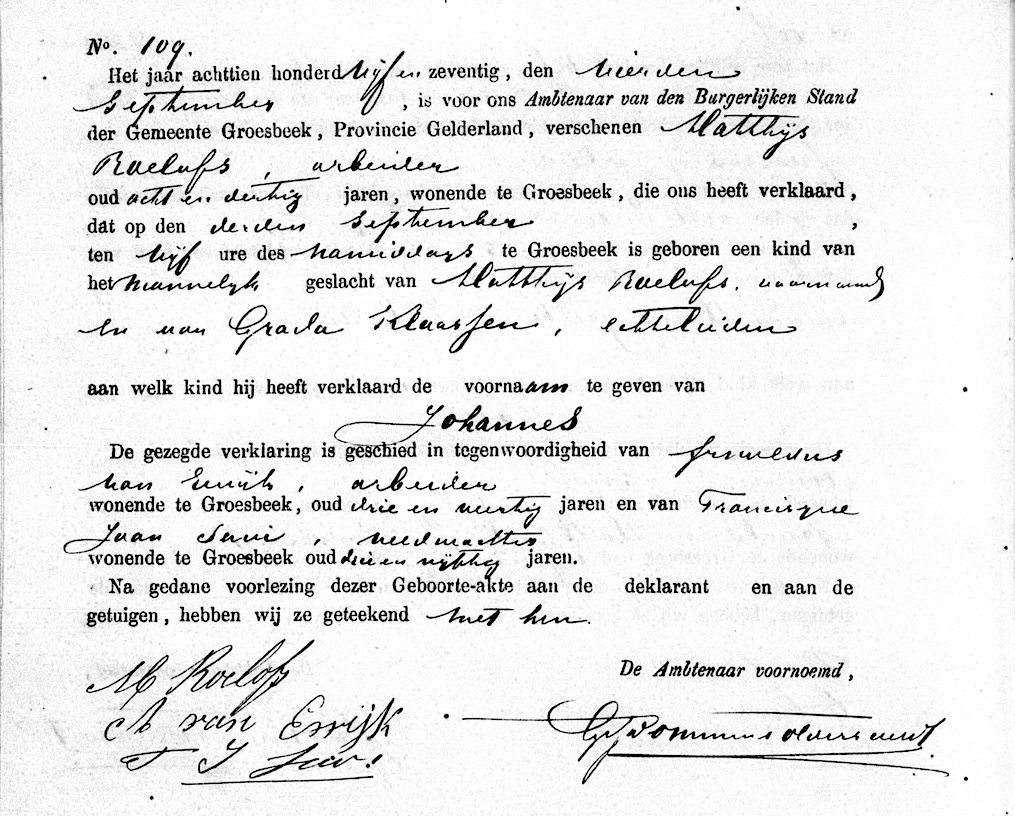 No. 109.
Het jaar achttien honderd vijf en zeventig, den vierden
September, is voor ons Ambtenaar van den Burgerlijken Stand
der Gemeente Groesbeek, Provincie Gelderland, verschenen Matthijs
Roelofs, arbeider
oud acht en dertig jaren, wonende te Groesbeek, die ons heeft verklaard,
dat op den derden September,
ten vijf ure des namiddags te Groesbeek is geboren een kind van
het mannelijk geslacht van Matthijs Roelofs, voornoemd
en van Grada Klaassen, echtelieden
aan welk kind hij heeft verklaard de voornaam te geven van
Johannes
De gezegde verklaring is geschied in tegenwoordigheid van
van Ewijk, arbeider
wonende te Groesbeek, oud drie en veertig jaren en van Francisque
Jean, veldwachter
wonende te Groesbeek oud drie en vijftig jaren.
Na gedane voorlezing dezer Geboorte-akte aan de deklarant en aan de
getuigen, hebben wij ze geteekend met hen.
De Ambtenaar voornoemd,
M Roelofs
A van Ewijk
F J